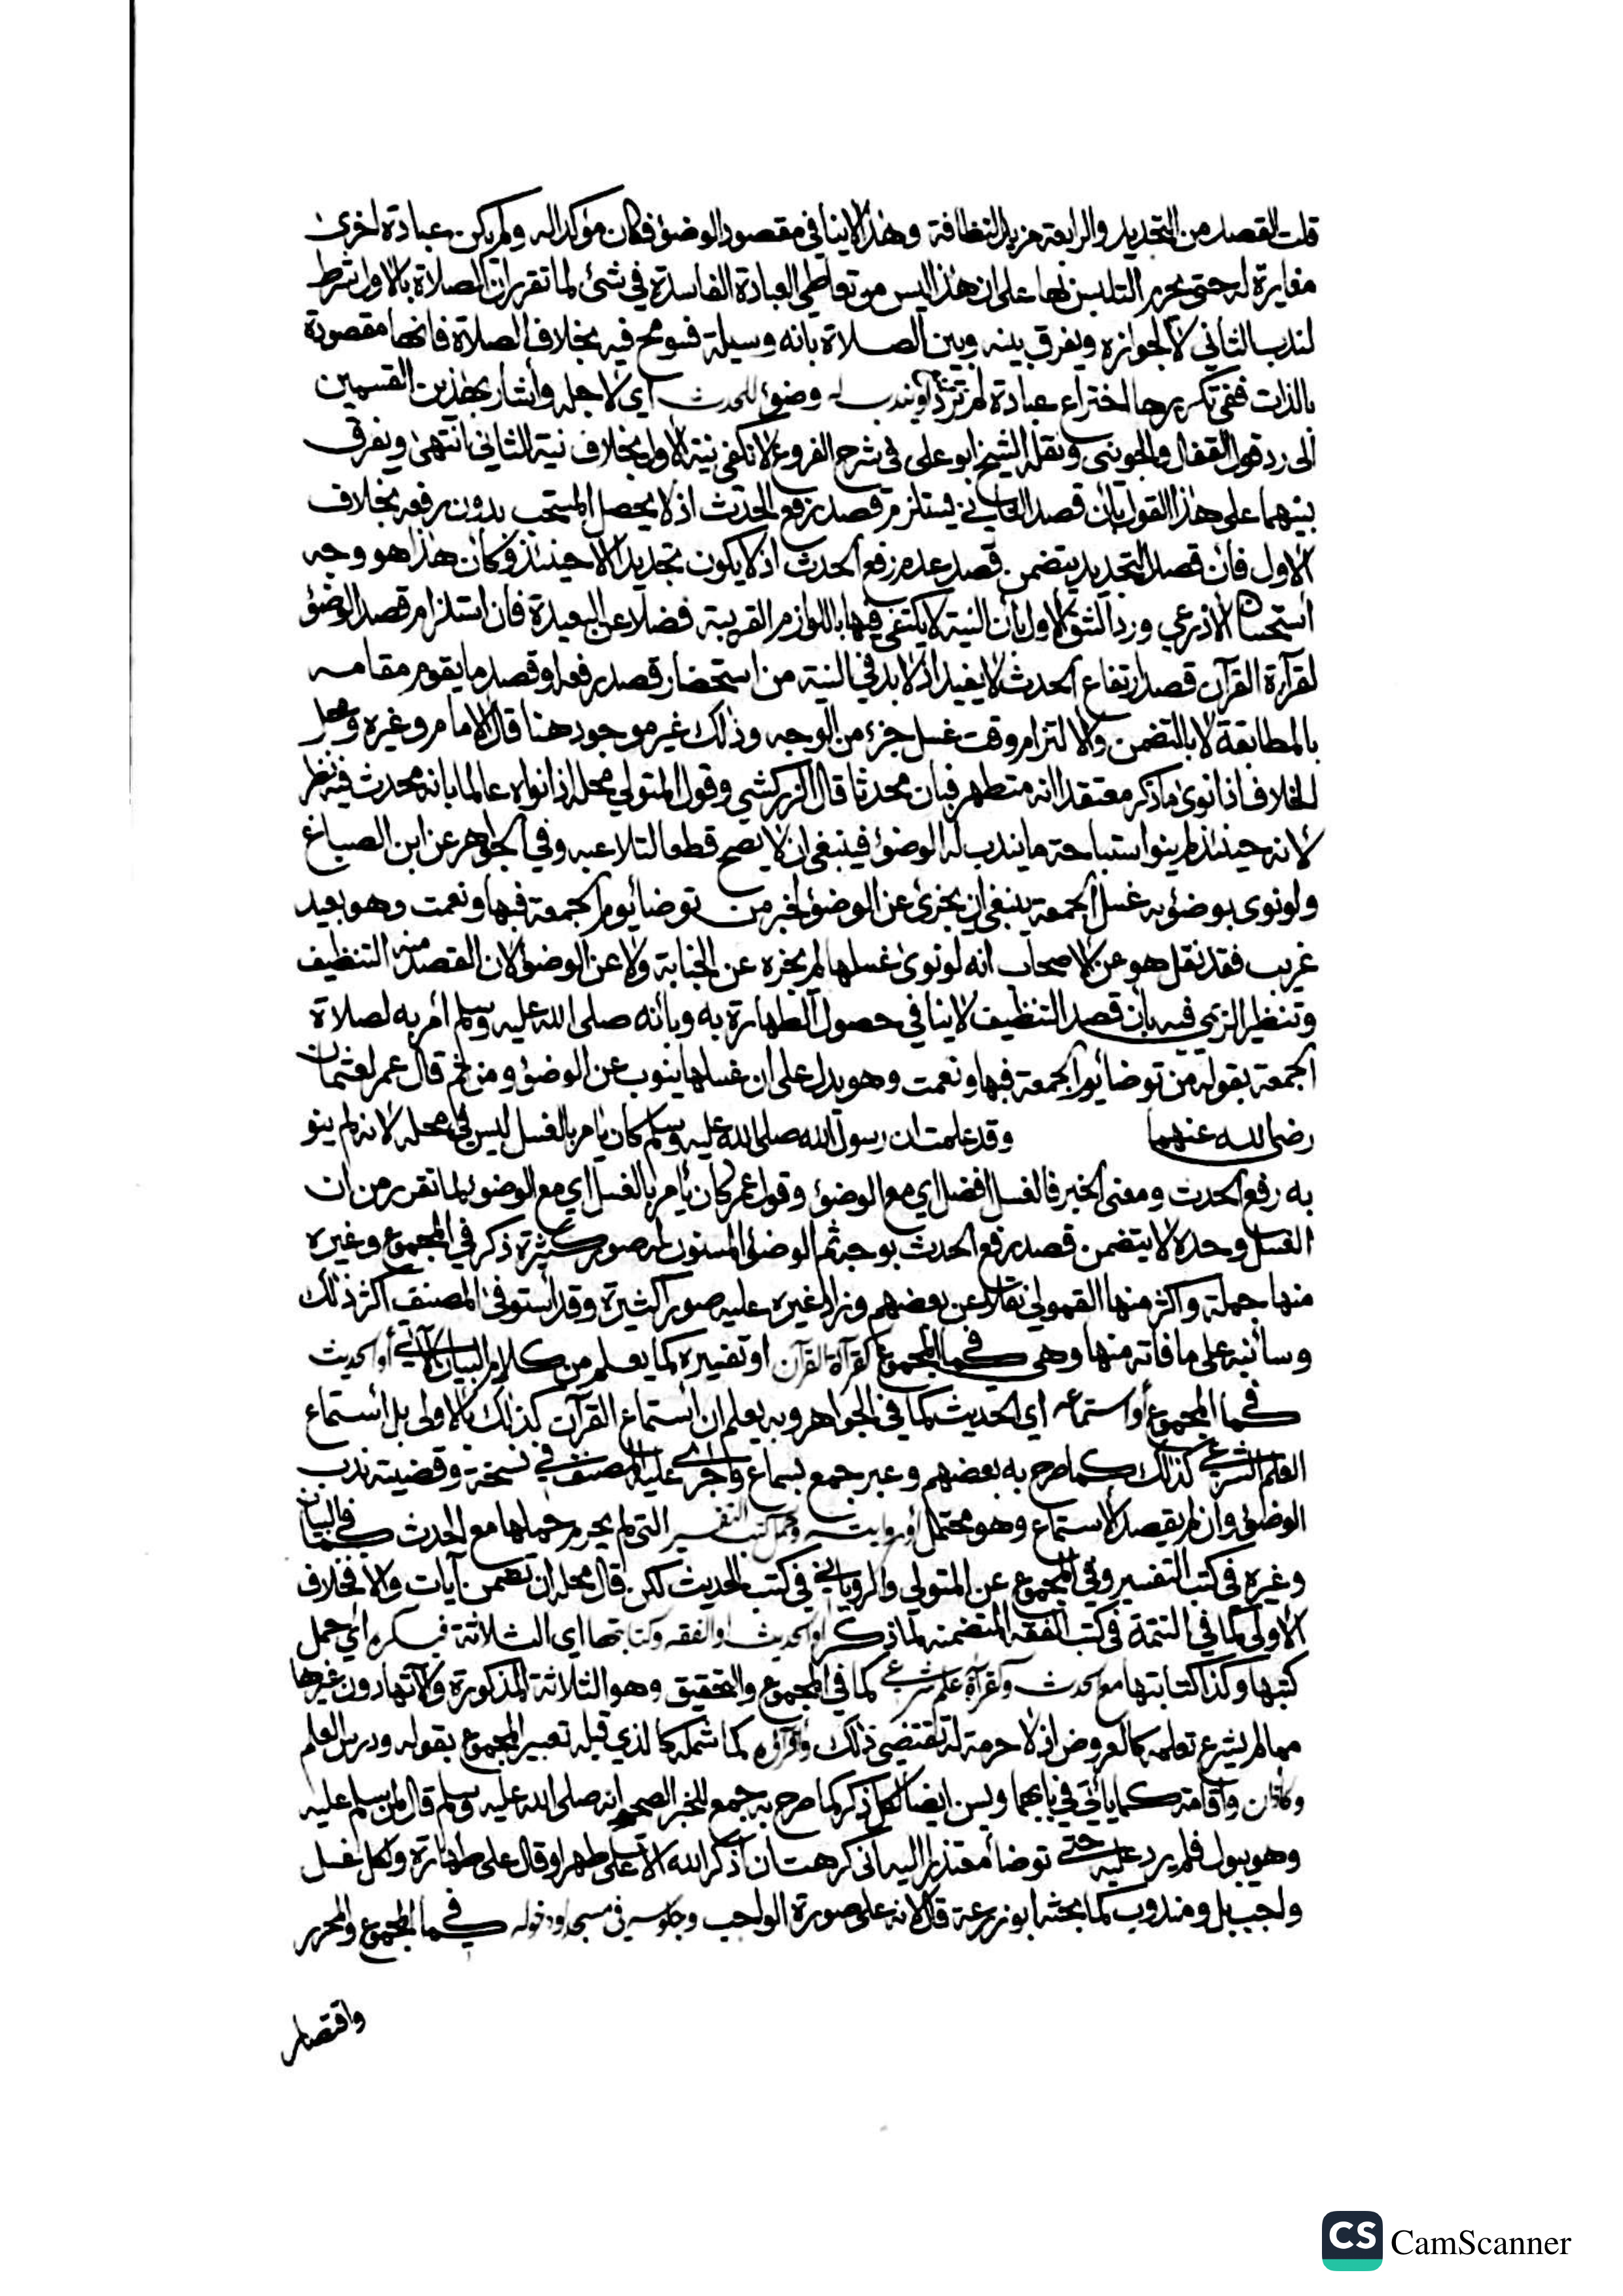 قلت القصد من التجديد والرابعة مزيد النظافة وهذا لاينافي مقصود الوضوء فكان مؤكدا له ولم يكن عبادة اخرى
مغايرة له حتى يحرم التلبس بها على ان هذا ليس من تعاطي العبادة الفاسدة في شئ لما تقرر ان الصلاة بالاول شرط
لندب الثاني لا لجوازه ويفرق بينه وبين الصلاة بانه وسيلة فسومح فيه بخلاف الصلاة فانها مقصودة
بالذات ففي تكريرها اختراع عبادة لم ترد او يندب له وضوء للحدث اي لاجله واشار بهذين القسمين
الى رد قول القفال والجويني ونقله الشيخ ابو علي في شرح الفروع لا تكفي نية الاول بخلاف نية الثاني انتهى ويفرق
بينهما على هذا القول بان قصد الثاني يستلزم قصد رفع الحدث اذ لا يحصل المستحب بدون رفعه بخلاف
الاول فان قصد التجديد يتضمن قصد عدم رفع الحدث اذ لا يكون تجديدا الا حينئذ وكان هذا هو وجه
استحسان الاذرعي ورد الشق الاول بأن النية لا يكتفى فيها باللوازم القريبة فضلا عن البعيدة فان استلزام قصد الوضوء
لقرآءة القرآن قصد ارتفاع الحدث لا يفيد اذ لا بد في النية من استحضار قصد رفعه او قصد ما يقوم مقامه
بالمطابقة لا بالتضمن والالتزام وقت غسل جزء من الوجه وذلك غير موجود هنا قال الامام وغيره ومحل
الخلاف اذا نوى ما ذكر معتقدا انه متطهر فبان محدثا قال الزركشي وقول المتولي محله اذا نواه عالما بانه محدث فيه نظر
لانه حينئذ لم ينو استباحة ما يندب له الوضوء فينبغي ان لا يصح قطعا لتلاعبه وفي الجواهر عن ابن الصباغ
ولو نوى بوضوئه غسل الجمعة ينبغي ان يجزئ عن الوضوء لخبر من توضا يوم الجمعة فبها ونعمت وهو بعيد
غريب فقد نقل هو عن الاصحاب انه لو نوى غسلها لم يجزه عن الجنابة ولا عن الوضوء لان القصد منه التنظيف
وتنظير الزيي فيه بأن قصد التنظيف لا ينافي حصول الطهارة به وبأنه صلى الله عليه وسلم أمر به لصلاة
الجمعة بقوله من توضا يوم الجمعة فبها ونعمت وهو يدل على ان غسلها ينوب عن الوضوء ومن ثم قال عمر لعثمان
رضي الله عنهما وقد علمت ان رسول الله صلى الله عليه وسلم كان يامر بالغسل ليس في محله لانه لم ينو
به رفع الحدث ومعنى الخبر فالغسل افضل اي مع الوضوء وقول عمر كان يأمر بالغسل اي مع الوضوء لما تقرر من ان
الغسل وحده لا يتضمن قصد رفع الحدث بوجه ثم الوضوء المسنون له صور كثيرة ذكر في المجموع وغيره
منها جملة واكثر منها القمولي نقلا عن بعضهم وزاد غيره عليه صورا كثيرة وقد استوفى المصنف اكثر ذلك
وسانبه على ما فاته منها وهي كما في المجموع كقرآة القرآن او تفسيره كما يعلم من كلام البيان الآتي أو الحديث
كما في المجموع أو استماعه اي الحديث كما في الجواهر وبه يعلم ان استماع القرآن كذلك بالاولى بل استماع
العلم الشرعي كذلك كما صرح به بعضهم وعبر جمع بسماع واجرى عليه المصنف في نسخة وقضيته ندب
الوضوء وان لم يقصد الاستماع وهو محتمل أو روايته وحمل كتب التفسير التي لم يحرم حملها مع الحدث كما في البيان
وغيره في كتب التفسير وفي المجموع عن المتولي والروياني في كتب الحديث لكن قال محله ان تضمن آيات والا فخلاف
الاولى كما في التتمة في كتب الفقه المتضمنه لما ذكر او الحديث او الفقه وكتابتها اي الثلاثة فيكره اي حمل
كتبها وكذا كتابتها مع الحدث وقرآة علم شرعي كما في المجموع والتحقيق وهو الثلاثة المذكورة والآتها دون غيرها
مما لم يشرع تعلمه كالعروض اذ لا حرمة له تقتضي ذلك واقرائه كما شمله كالذي قبله تعبير المجموع بقوله ودرس العلم
وكأذان واقامة كما يأتي في بابهما ويسن ايضا لكل ذكر كما صرح به جمع للخبر الصحيح انه صلى الله عليه وسلم قال لمن سلم عليه
وهو يبول فلم يرد عليه حتى توضأ معتذرا اليه اني كرهت ان اذكر الله الا على طهر او قال على طهارة ولكل غسل
واجب بل ومندوب كما بحثه ابو زرعة قال لانه على صورة الواجب وجلوسه في مسجد او دخوله كما في المجموع والمحرر
واقتصار